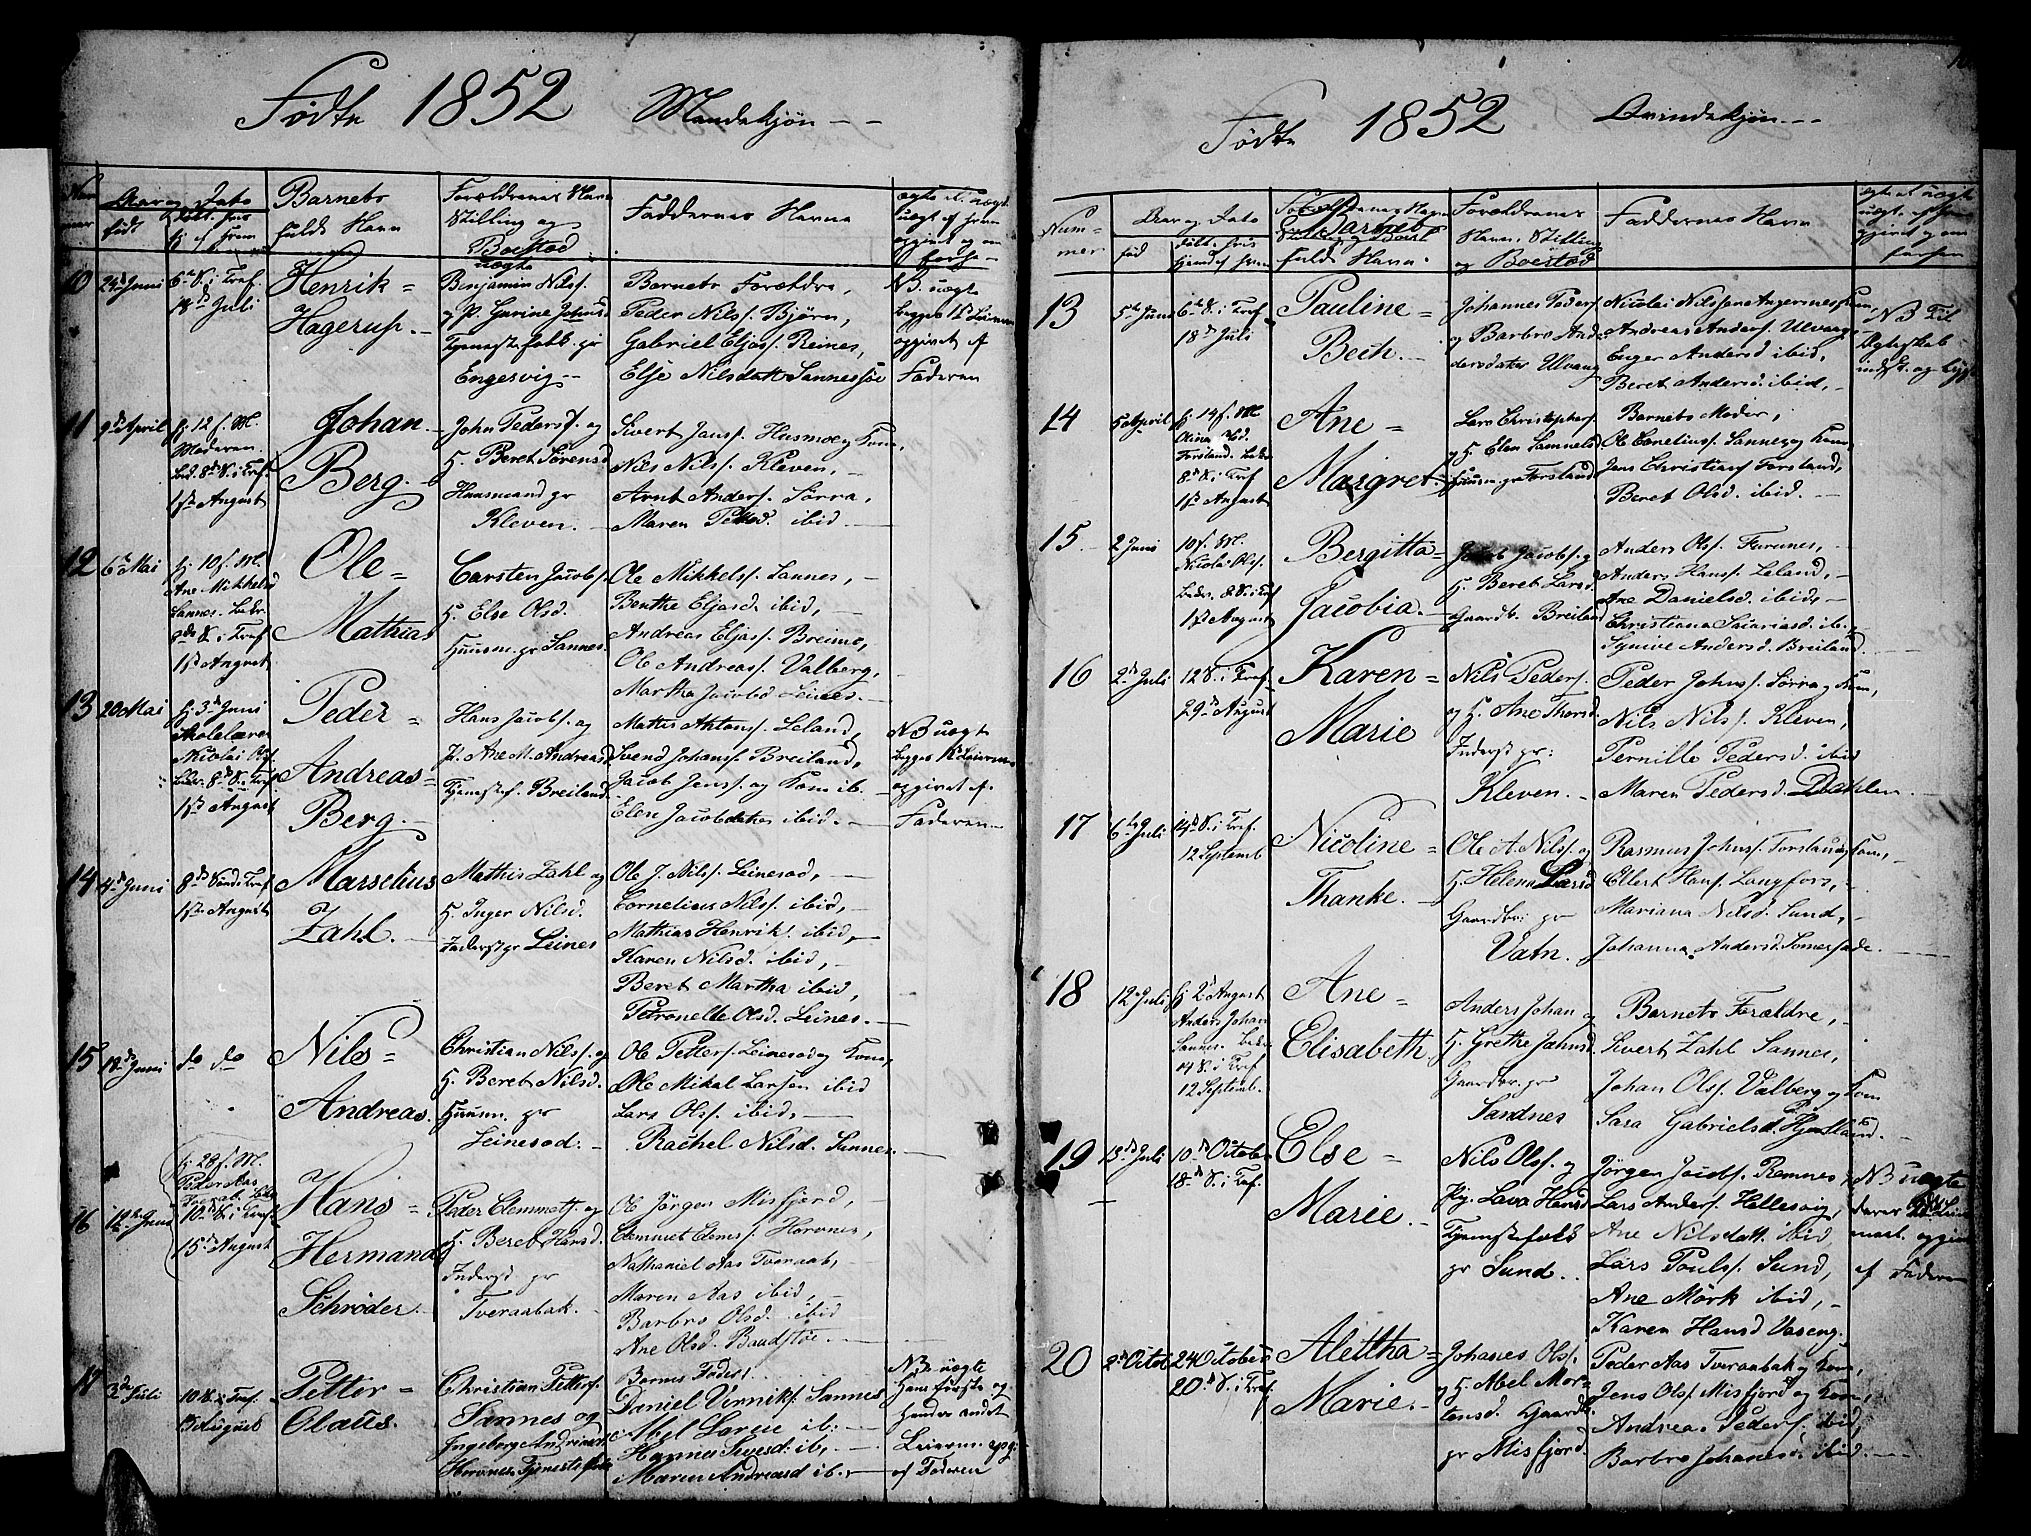 Fødte 1852 Mandekjøn
Aar og Dato
født
Barnets
fulde Navn
Forældrenes Navn
Stilling og
Boested
Faddernes Navne
10
24de Juni
6te S. i Tref.
18de Juli
Henrik =
Hagerup. -
uægte
Benjamin Nils.
og P. Gurine Johnsd
Tjenestefolk. gr
Engesvig --
Barnets Forældre,
Peder Nilss. Bjørn,
Gabriel Eljass. Reines,
Else Nilsdatt Sannessøe
NB. uægte
Begges 1ste Leierm
opgivet af
Faderen
11
9de April
hj. 12 f. M.
Moderen
Bed. 8de S. i Tref.
1ste August
Johan
Berg. -
John Peders. og
H. Beret Sørensd
Huusmand gr
Kleven. -
Sivert Janss. Husmoe og Kone,
Nils Nilss. Kleven, -
Arnt Anders. Sørra,
Maren Petted. ibid -
12
6te Mai
hj. 10 f. M.
Ane Mikkelsd
Sannes. Bedr.
8de S. i Tref
1ste August
Ole =
Mathias
Carsten Jacobs.
H. Else Olsd.
Huusm. gr Sannes.
Ole Mikkelss. Sannes, -
Benthe Eljasd. ibid, -
Andreas Eljass. Breime,
Ole Andreass. Valberg,
Martha Jacobsd Leines -
13
20 Mai
hj. 3de Juni
Skolelærer
Nicolai Ols.
Bedr. 8de S. i Tref
1ste August
Peder =
Andreas =
Berg. -
Hans Jacobs. og
P. Ane M. Andreasd.
Tjenestef. Breiland
Mattis Antons. Leland,
Svend Johans. Breiland,
Jacob Jenss. og Kone ib.
Elen Jacobdatter ibid. -
NB uægt
Begges 1ste Leierm
opgivet af
Faderen -
14
4de Juni
8de Sønd. i Tref
1ste August
Marselius
Zahl. -
Mathis Zahl og
H. Inger Nilsd.
Inderst gr Leines
Ole J. Nilss. Leinesod,
Cornelius Nilss. ibid, -
Mathias Henrik. ibid, -
Karen Nilsd. ibid, -
Beret Martha ibid,
Petronelle Olsd. Leines. -
15
18de Juni
do do
Nils =
Andreas.
Christian Nilss. og
H. Beret Nilsd.
Huusm. gr
Leinesod. -
Ole Petters. Leinesod og Kone,
Ole Mikal Larsen ibid
Lars Olss. ibid, -
Rachel Nilsd. Sannes. -
16
12te Juni
hj. 28 f. M.
Peder Aas
Tveraab. Bedr
10de S. i Tref
15de August
Hans =
Hermand
Schrøder. -
Peder Clemmets. og
H. Beret Hansd.
Inderst gr
Tveraabak. -
Ole Jørgen Misfjord, -
Clemmet Clems. Horvnes, -
Nathaniel Aas Tveraab,
Maren Aas ibid, -
Barbro Olsd. ibid
Ane Olsd. Baadstøe. -
17
3de Juli
10 S. i Tref.
15 August
Petter =
Olaus.
Christian Petters.
Sannes og
Ingeborg Andreasd
Horvnes Tjenestefolk
Barnets Fader
Daniel Vinniks. Sannes
Abel Larne ib. -
Hannes Sivesd. ib. -
Maren Andreasd ib. -
NB. uægte
Hans første og
Hendes andet
Leierm. opg.
af Faderen
Fødte 1852 Qvindekjøn --
Num-
mer
Aar og Dato
fød
Barnets
fulde Navn.
Forældrenes
Navn, Stilling
og Boested
Faddernes Navn
13
5te Juni
6te S. i Tref
18de Juli
Pauline =
Bech. -
Johannes Peders
og Barbro And-
dersdatter Ulvang
Nicolai Nilssen Angersnes Kone,
Andreas Anders. Ulvang -
Enger Andersd ibid,
Beret Andersd. ibid, -
NB Til
Dybeskab
14
5 April
hj. 14 f. M.
Olina Ped.
Forsland. Bedr
8de S. i Tref
1ste August
Ane =
Margret. -
Lars Christophers
og H. Elen Samuelsd
Huusm. gr Forsland
Barnets Moder,
Ole Cornelius. Sannes og Kone,
Jens Christians Forsland,
Beret Olsd. ibid. -
15
2 Juni
10 f. M.
Nicolai Olss.
Bedr. 8 S. i Tref
1ste August
Bergitta =
Jacobia. -
Jacob Jacobs. og
H. Beret Larsd
Gaardb. Breiland
Anders Olss. Furunes, -
Anders Hanss. Leland, -
Ane Danielsd. ibid, -
Christiana Saiariasd. ib. -
Synive Andersd. Breiland. -
16
2de Juli
12 S. i Tref.
29de August
Karen =
Marie
Nils Peders.
og H. Ane Thorsd
Inderst gr:
Kleven. -
Peder Johns. Sørra og Kone,
Nils Nilss. Kleven,
Pernille Pedersd. ibid
Maren Pedersd. Dahlen. -
17
6te Juli
14de S. i Tref.
12 Septemb
Nicoline =
Thanke. -
Ole A. Nilss. og
H. Helena Larsd
Gaardbr. gr
Vatn.
Rasmus Johns. Forsland og Kone,
Ellert Hans. Langfors, -
Mariana Nilsd. Sund, -
Johanna Andersd. Somersæde. -
18
12 Juli
hj. 2de August
Anders Johan
Sannes. Bedr
14 S. i Tref
12 Septemb.
Ane =
Elisabeth
Anders Johan og
H. Grethe Johnsd.
Gaardbr. gr
Sandnes
Barnets Forældre, -
Sivert Zahl Sannes,
Johan Olss. Valberg og Kone
Sara Gabrielsd. Hjertland. -
19
13de Juli
10de October
18de S. i Tref.
Else =
Marie. -
Nils Olss. og
P. Lava Hansd
Tjenestefolk
gr Sund. -
Jørgen Jacobs. Remnes,
Lars Anders. Hellesvig,
Ane Nilsdatt. ibid
Lars Pouls. Sund,
Ane Mørk ibid, -
Karen Hansd Vaseng. -
NB uægte
deres 2det Leier-
maal. opgivet
af Faderen
20
2de Octob
24 October
20de S. i Tref.
Aletha =
Marie. -
Johanes Olss.
og H. Abel Mor-
tensd. Gaardb.
gr Misfjord.
Peder Aas Tveraabak og Kone,
Jens Olss. Misfjord og Kone
Andreas Peders. ibid,
Barbro Johanesd. ibid. -